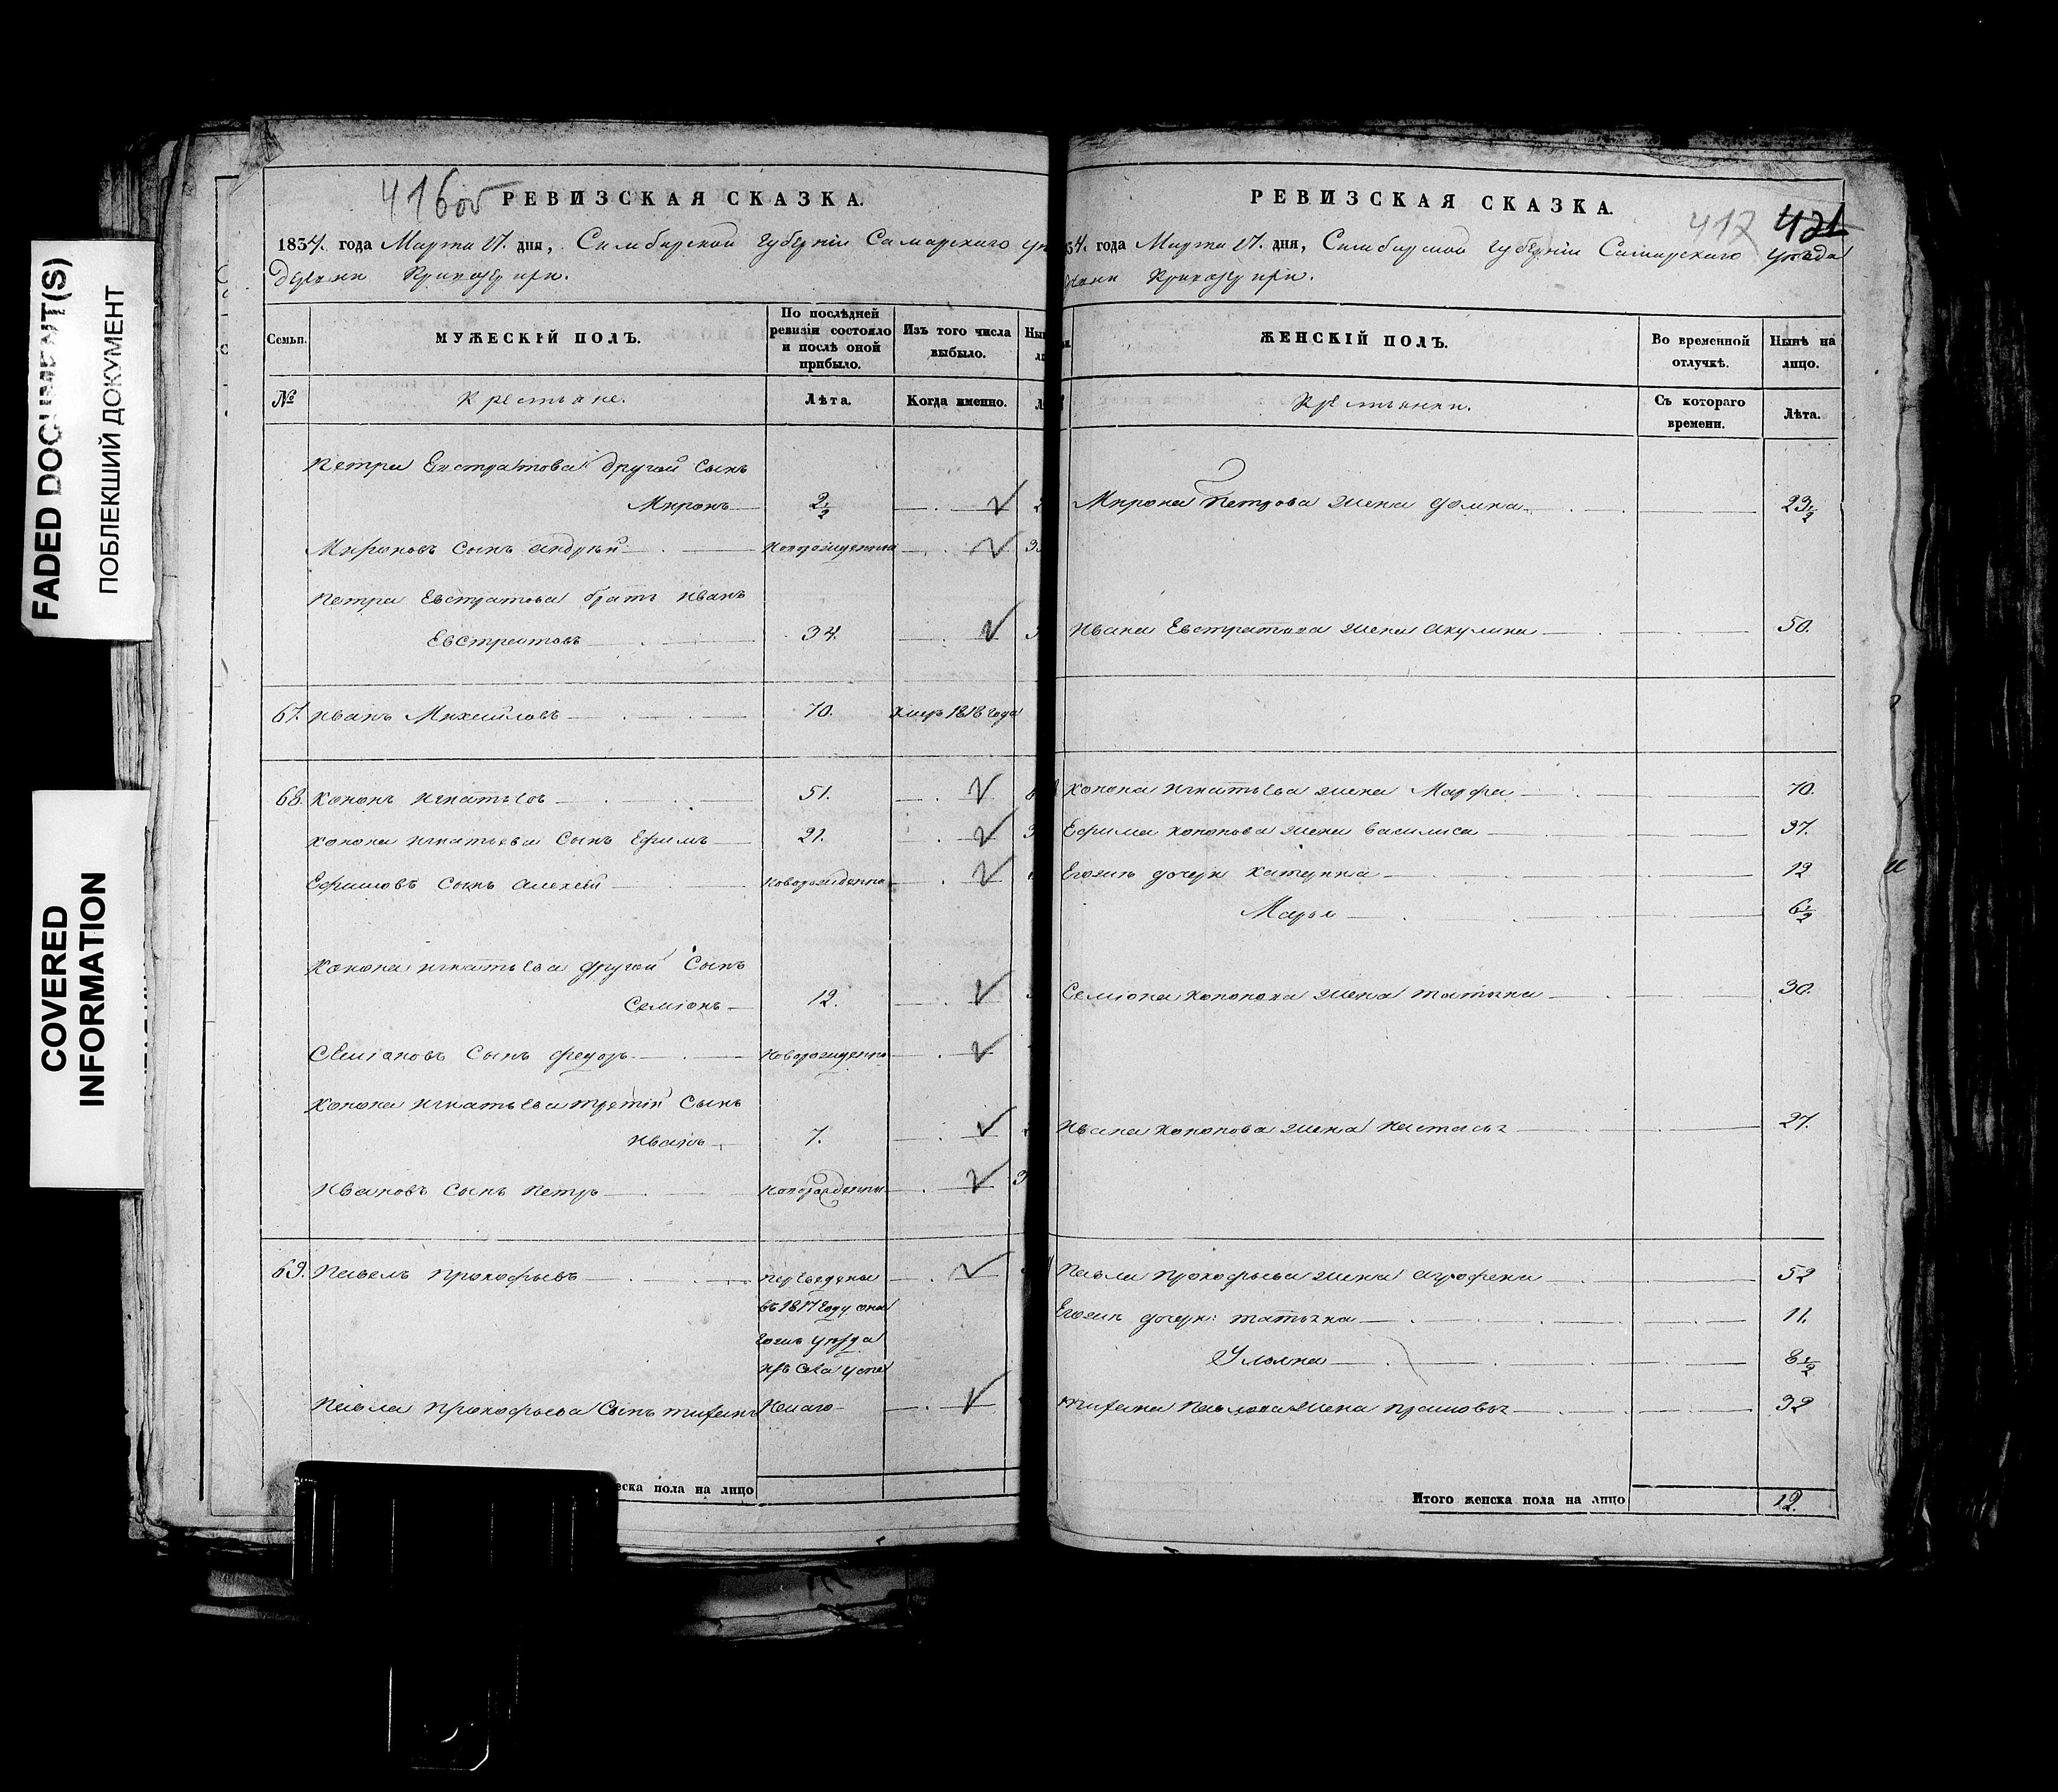 FADED DOCUMENT(S)
ПОБЛЕКШИЙ ДОКУМЕНТ
COVERED
INFORMATION
416об
РЕВИЗСКАЯ СКАЗКА.
1834. года Марта 27. дня, Симбирской губернiи Самарского
Семьи.
МУЖЕСКІЙ ПОЛЪ.
По послѣдней ревизіи состояло и послѣ оной прибыло.
Изъ того числа выбыло.
№
Крестьяне.
Лѣта.
Когда именно.
Петра Евстратова другой сынъ
Миронъ 2 1/2
Мироновъ сынъ Андрей Новорожденный
Петра Евстратова братъ Иванъ
Евстратовъ 34.
67. Иванъ Михайловъ 70. Умеръ 1818 года
68. Кононъ Игнатьевъ 51.
Конона Игнатьева Сынъ Ефимъ 21.
Ефимовъ Сынъ Алексей Новорожденно
Конона Игнатьева другой Сынъ
Семіонъ 12.
Семіоновъ Сынъ Федоръ Новорожденно
Конона Игнатьева третій Сынъ
Иванъ 7.
Ивановъ Сынъ Петръ Новорожденны
69. Павелъ Прокофьевъ переведены
въ 1817 году
уезда
изъ села
Павла Прокофьева Сынъ
еска пола на лицо
РЕВИЗСКАЯ СКАЗКА.
417 421
34. года Марта 27. дня, Симбирской губерніи Самарского уезда
ЖЕНСКІЙ ПОЛЪ.
Во временной отлучкѣ.
Нынѣ на лицо.
Крестьянки.
Съ котораго времени.
Лѣта.
Мирона Петрова жена Домна 23 1/2
Ивана Евстратова жена Акулина 50.
Конона Игнатьева жена Марфа 70.
Ефима Кононова жена Василиса 37.
дочери Катерина 12
Марья 6 1/2
Семіона Кононова жена Татьяна 30.
Ивана Кононова жена Настасья 27.
Павла Прокофьева жена Агрофена 52
дочери: Татьяна 11.
Ульяна 8 1/2
Павлова жена Прасковья 32
Итого женска пола на лицо 12.